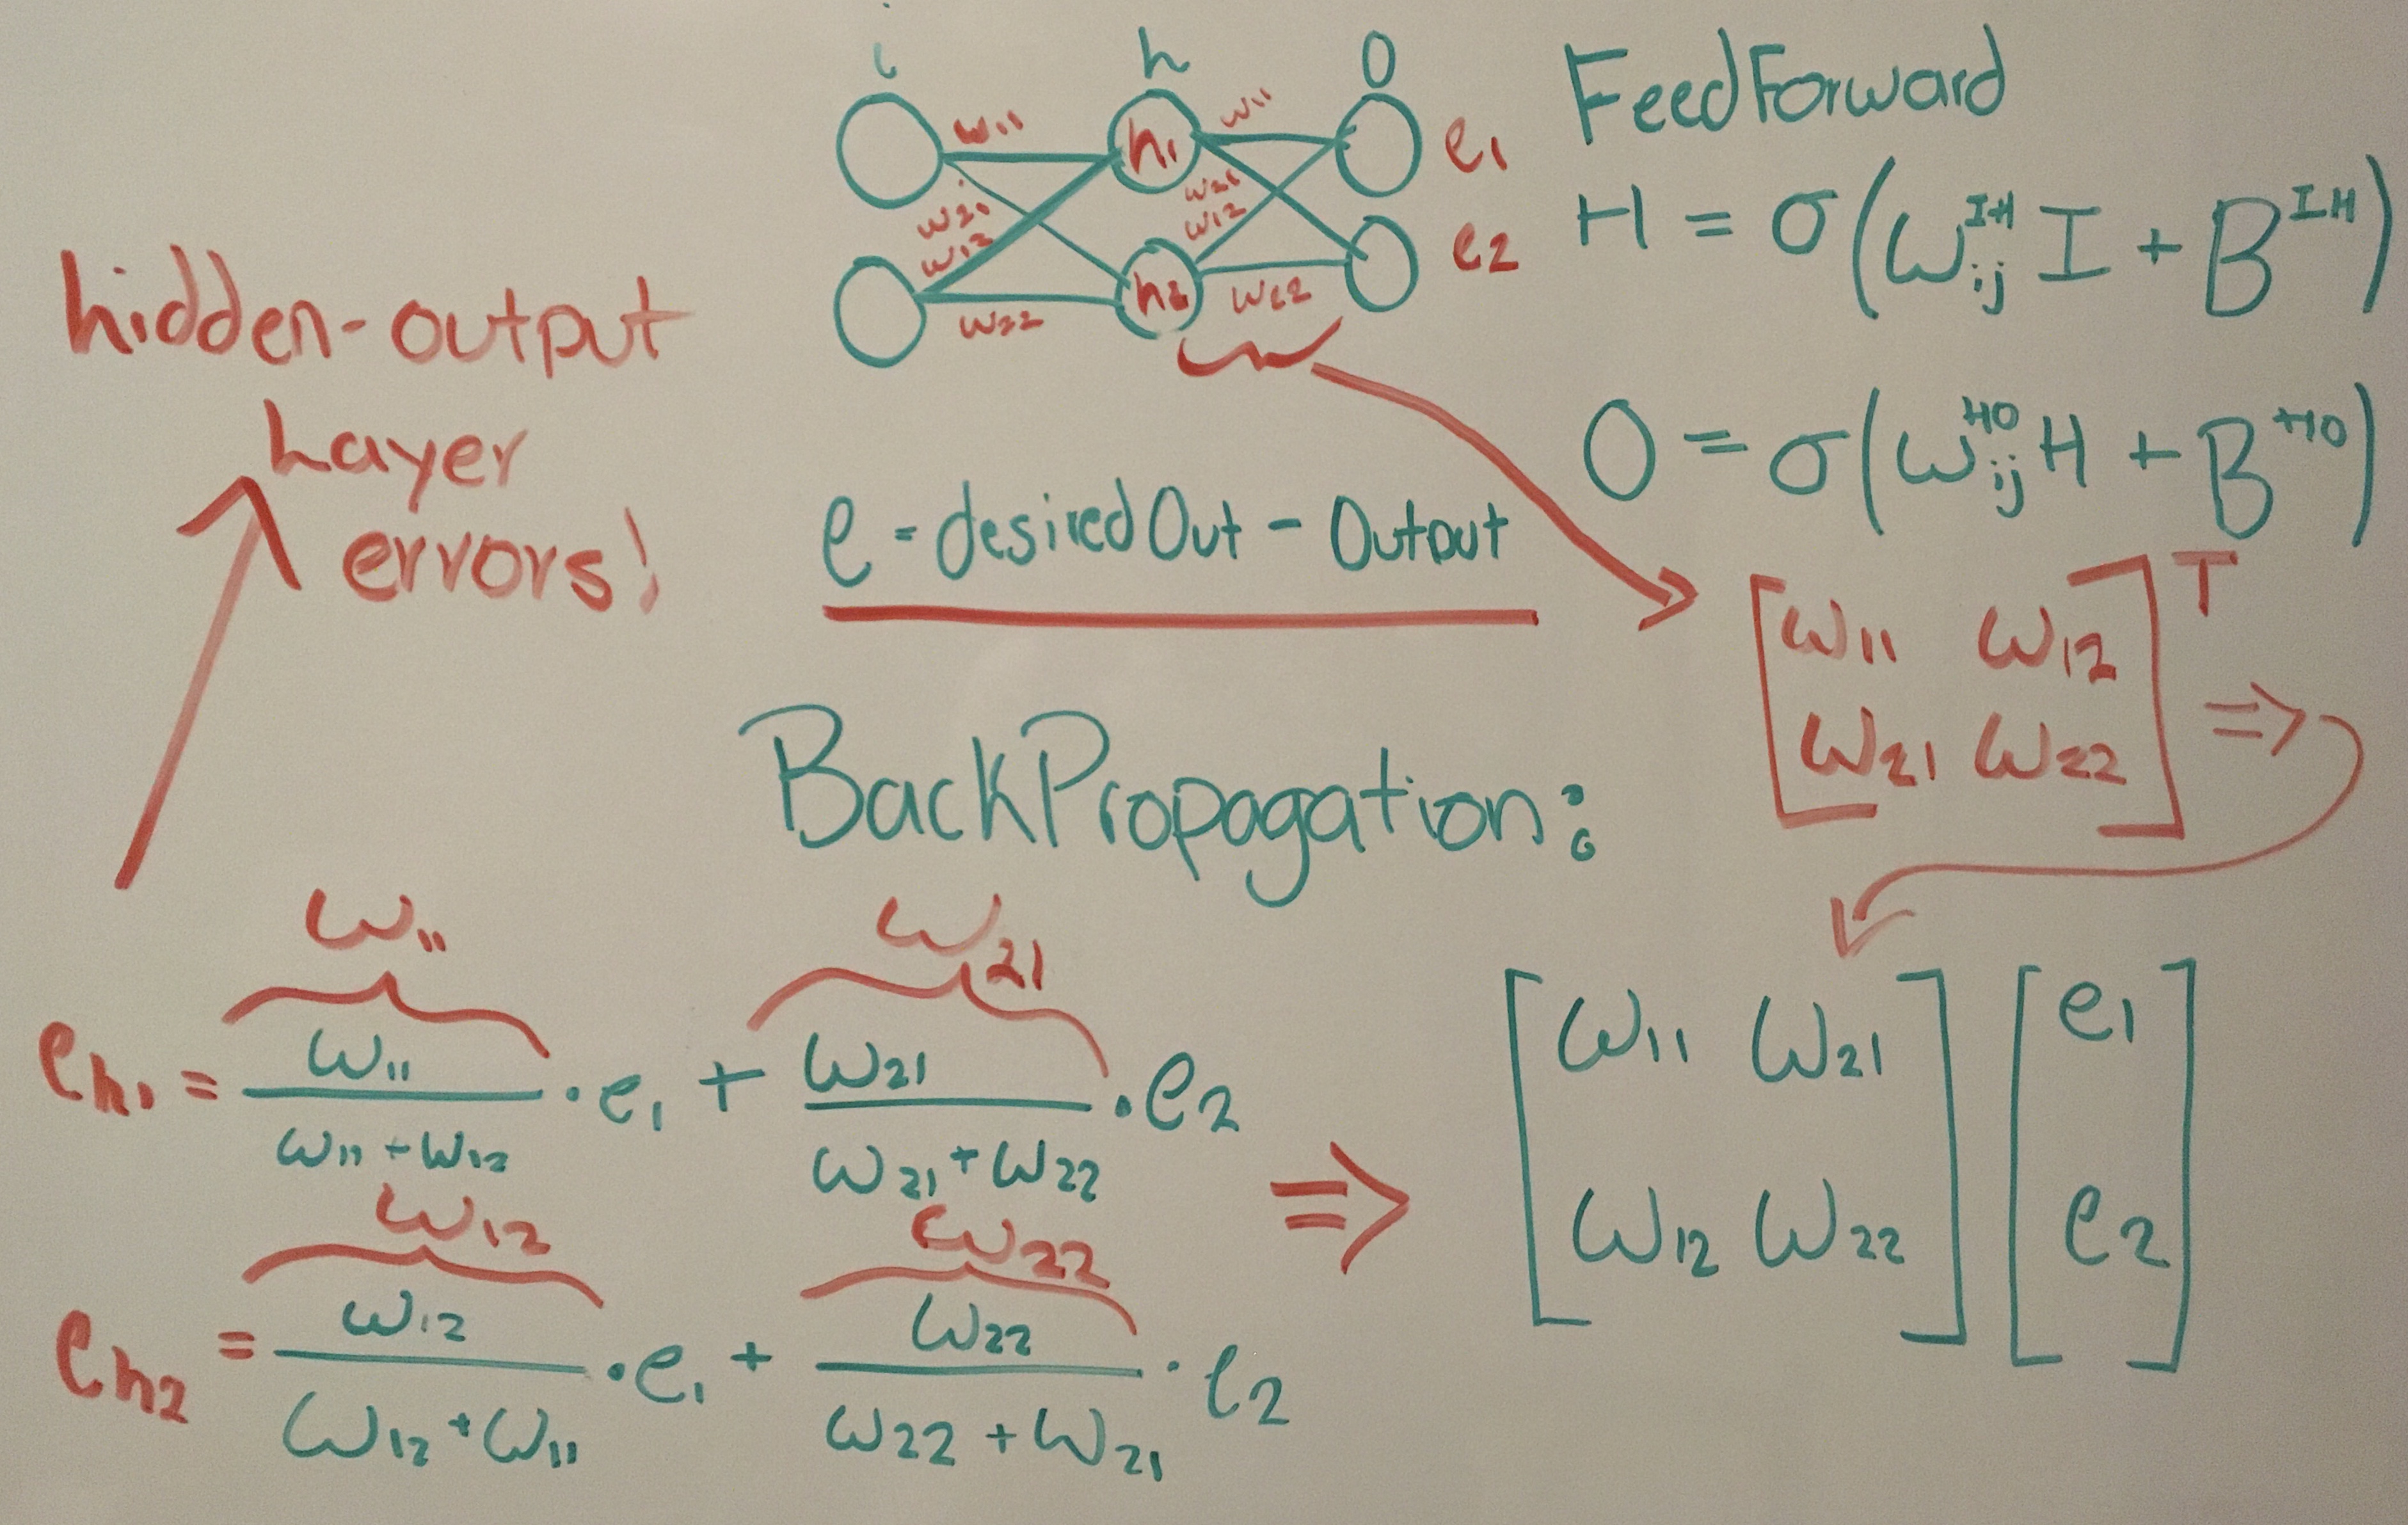 i h O
w11 w11
h1 e1
w21 w21
w12 w12
h2 e2
w22 w22
FeedForward
H = σ(ω_ij^IH I + B^IH)
O = σ(ω_ij^HO H + B^HO)
hidden-output
Layer
errors!
e = desiredOut - Output
[ω11 ω12
ω21 ω22]^T ⇒
BackPropagation:
ω11 ω21
eh1 = ω11/(ω11 + ω12) · e1 + ω21/(ω21 + ω22) · e2
ω12 ω22
eh2 = ω12/(ω12 + ω11) · e1 + ω22/(ω22 + ω21) · e2
⇒ [ω11 ω21] [e1]
[ω12 ω22] [e2]